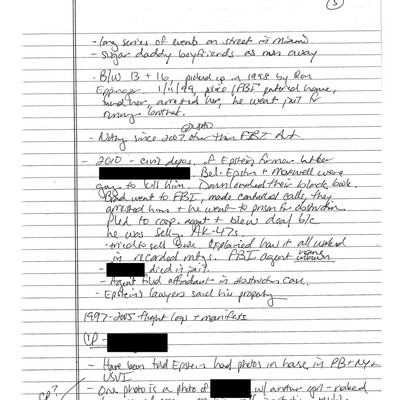 5
- long series of events on street in Miami
- sugar daddy boyfriends as run away
- B/W 13 + 16, picked up in 1998 by Ron
Eppinger. 1/11/99, police / FBI entered house,
arrested her, he went jail for
running brothel.
- Nothing since 2007, other than FBI
- 2010 - civil depos. of Epstein, former butler
. Bel. Epstein + Maxwell were
going to kill him. Downloaded their black book.
Brad went to FBI, made controlled calls, they
arrested him + he went to prison for obstruction
Pled to coop. agmt + blew deal b/c
he was selling AK-47s.
- tried to sell book. Explained how it all worked
in recorded mtgs. FBI agent
- died in jail.
- Agent filed affidavit in obstruction case.
- Epstein's lawyers said his property
1997-2005 flight logs + manifests
CP -
- Have been told Epstein had photos in house in PB + NY +
USVI
CP?
- One photo is a photo of w/ another girl - naked